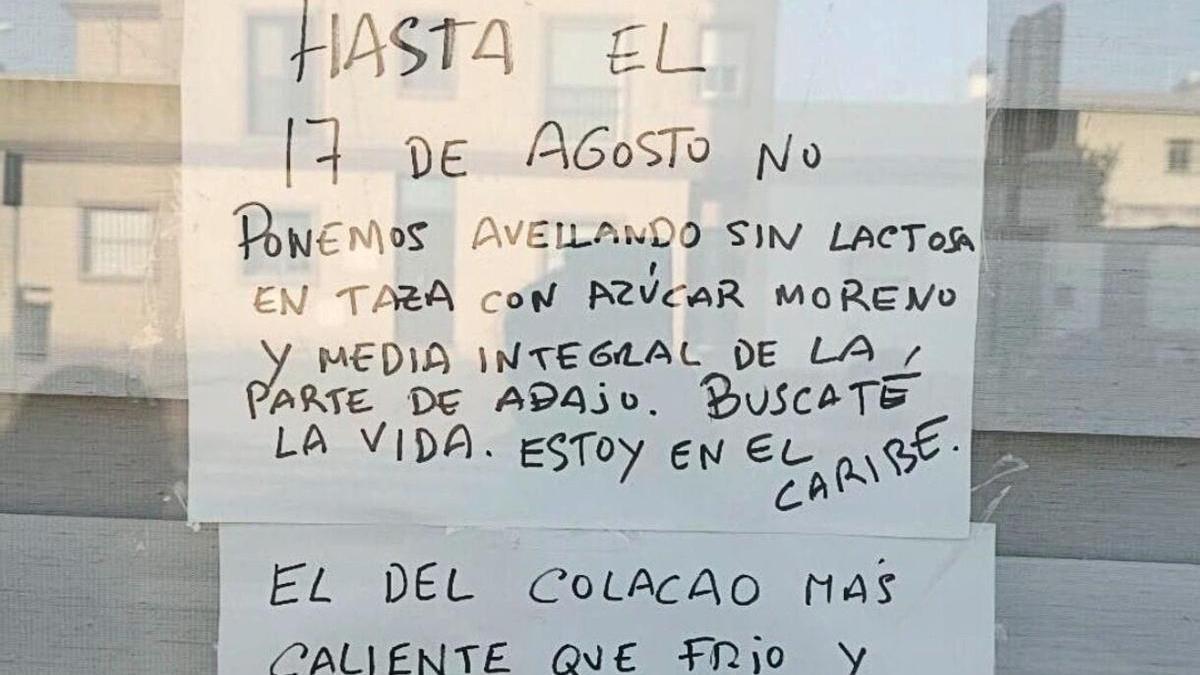 HASTA EL
17 DE AGOSTO NO
PONEMOS AVELLANDO SIN LACTOSA
EN TAZA CON AZÚCAR MORENO
Y MEDIA INTEGRAL DE LA
PARTE DE ABAJO. BUSCATÉ
LA VIDA. ESTOY EN EL
CARIBE.
EL DEL COLACAO MÁS
CALIENTE QUE FRIO Y